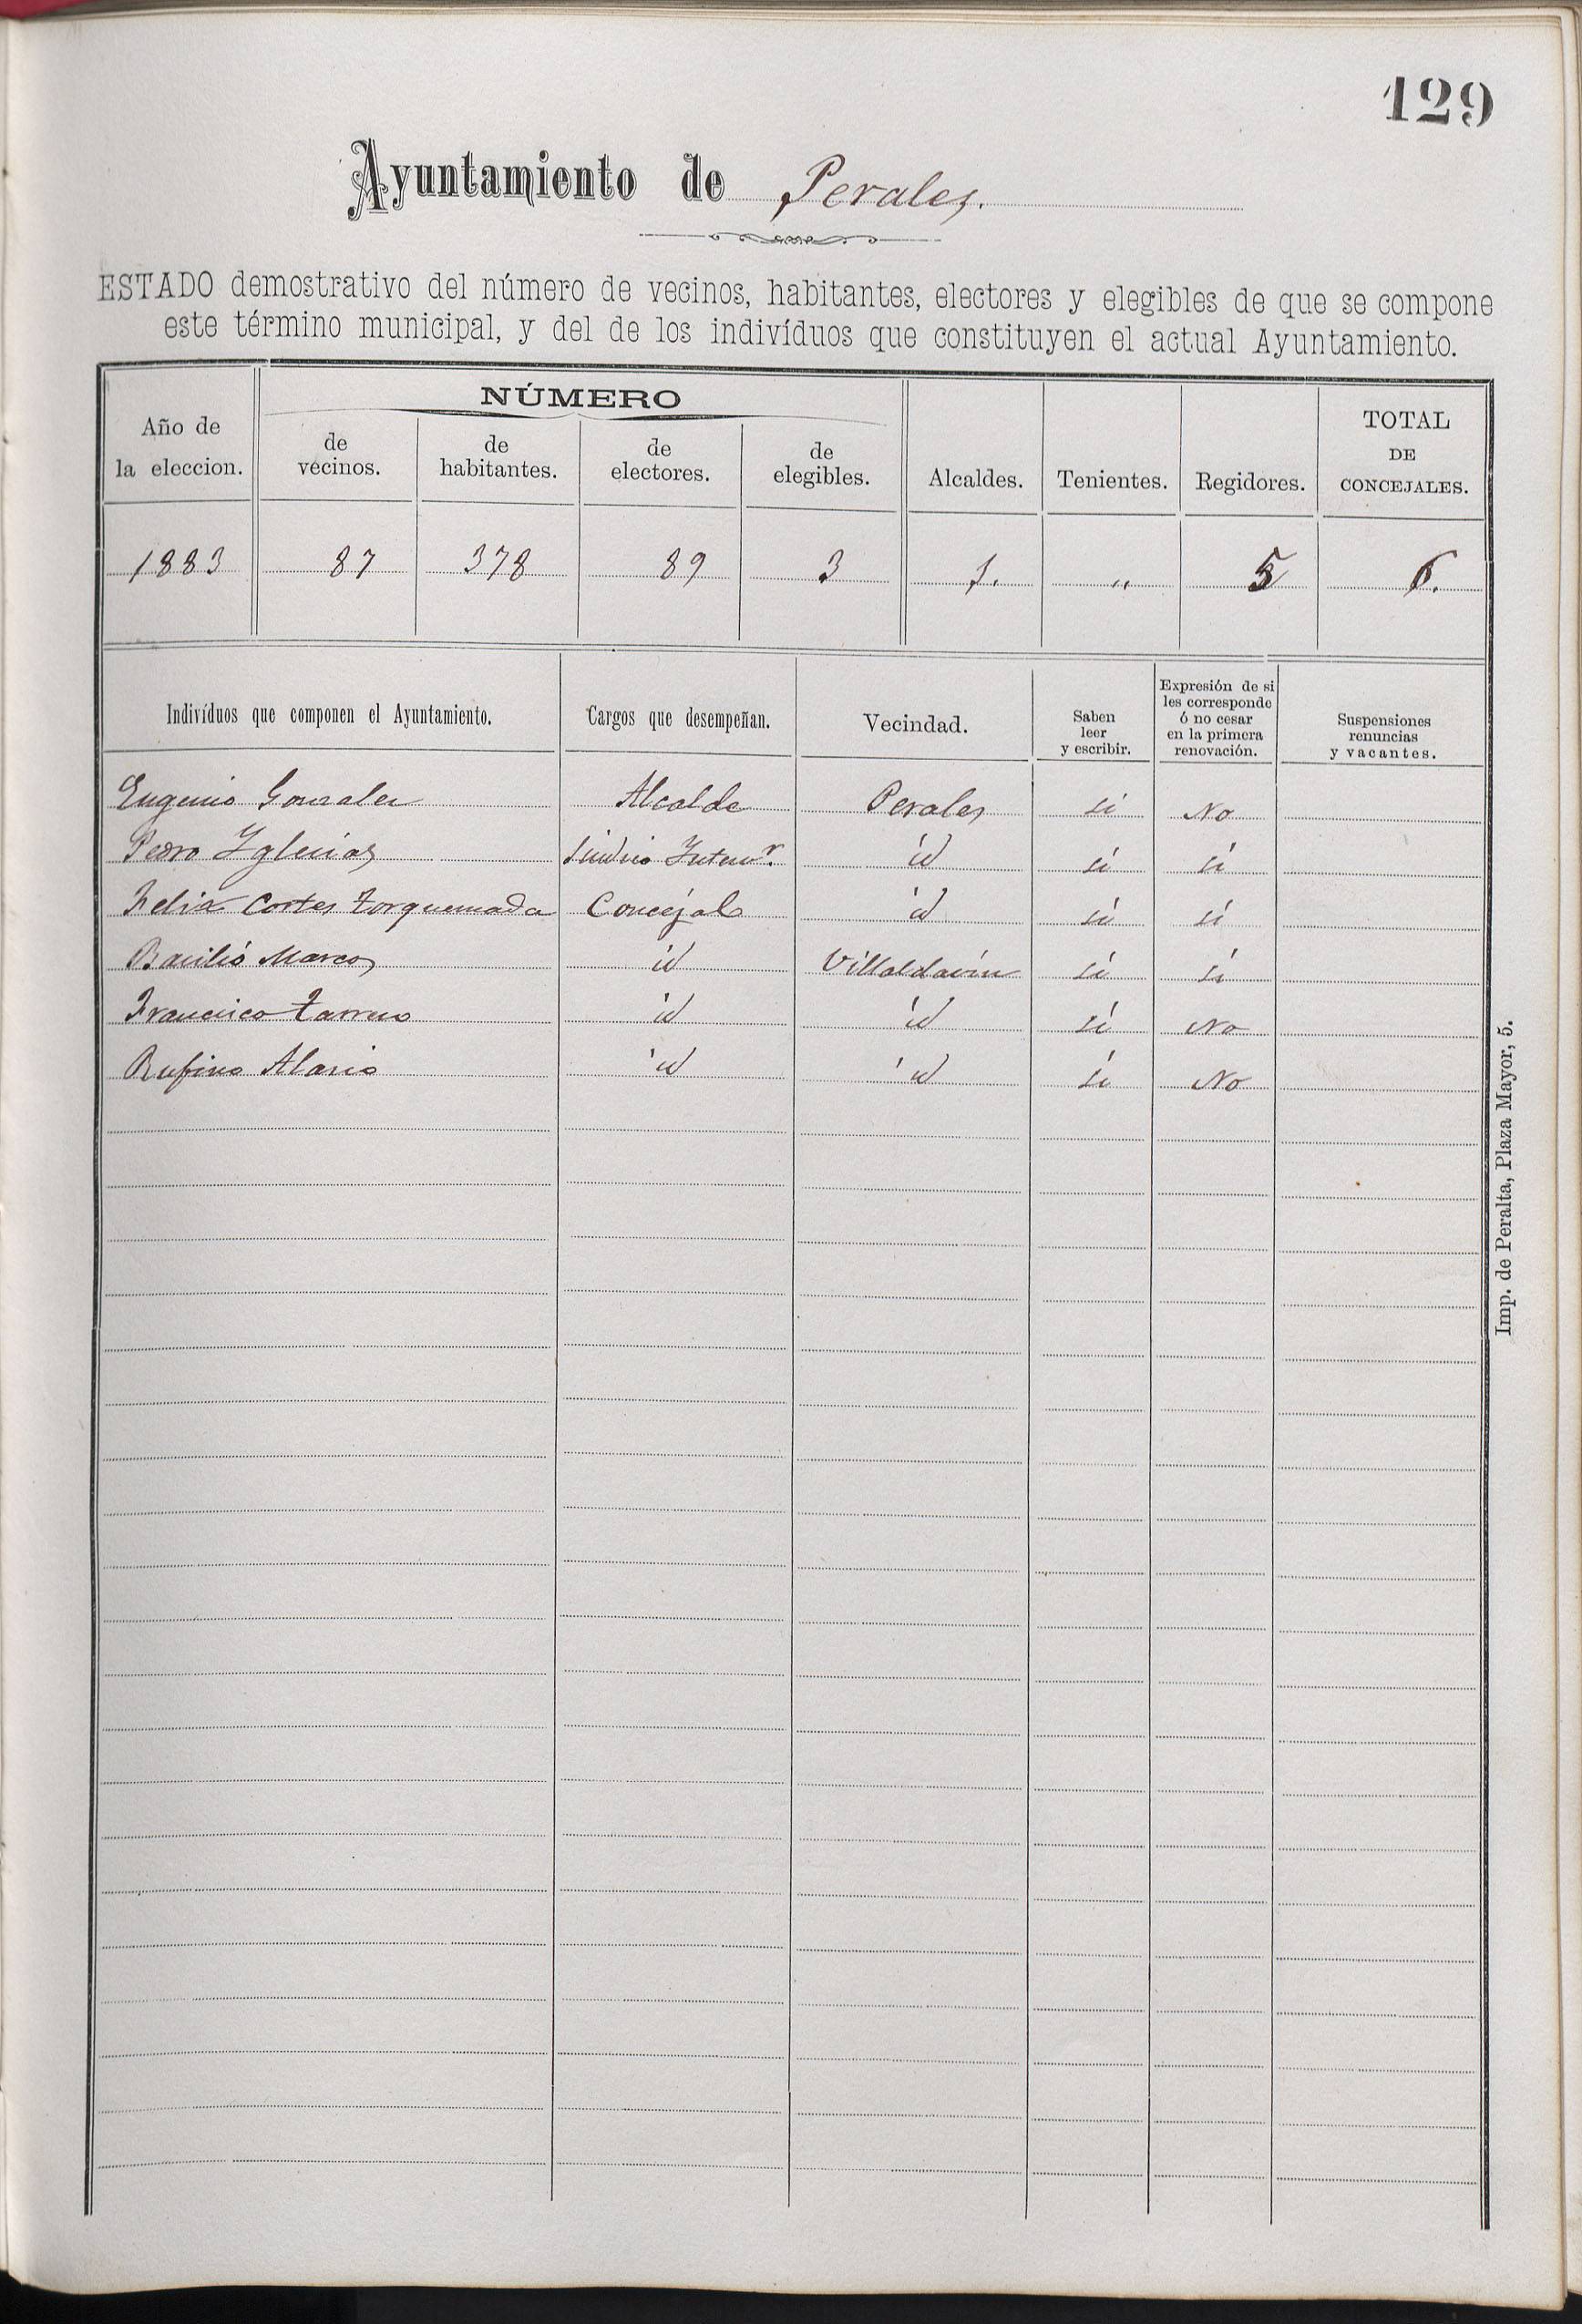 129
Ayuntamiento de Perales.
ESTADO demostrativo del número de vecinos, habitantes, electores y elegibles de que se compone
este término municipal, y del de los indivíduos que constituyen el actual Ayuntamiento.
Año de la eleccion. NÚMERO de vecinos. de habitantes. de electores. de elegibles. Alcaldes. Tenientes. Regidores. TOTAL DE CONCEJALES.
1883 87 378 89 3 1. " 5 6.
Indivíduos que componen el Ayuntamiento. Cargos que desempeñan. Vecindad. Saben leer y escribir. Expresión de si les corresponde ó no cesar en la primera renovación. Suspensiones renuncias y vacantes.
Eugenio Gonzalez Alcalde Perales si No
Pedro Yglesias Sindico Ynterv.r id si si
Felix Cortes Torquemada Concejal id si si
Basilio Marcos id Villaldavin si si
Francisco id id si No
Rufino Alario id id si No
Imp. de Peralta, Plaza Mayor, 5.